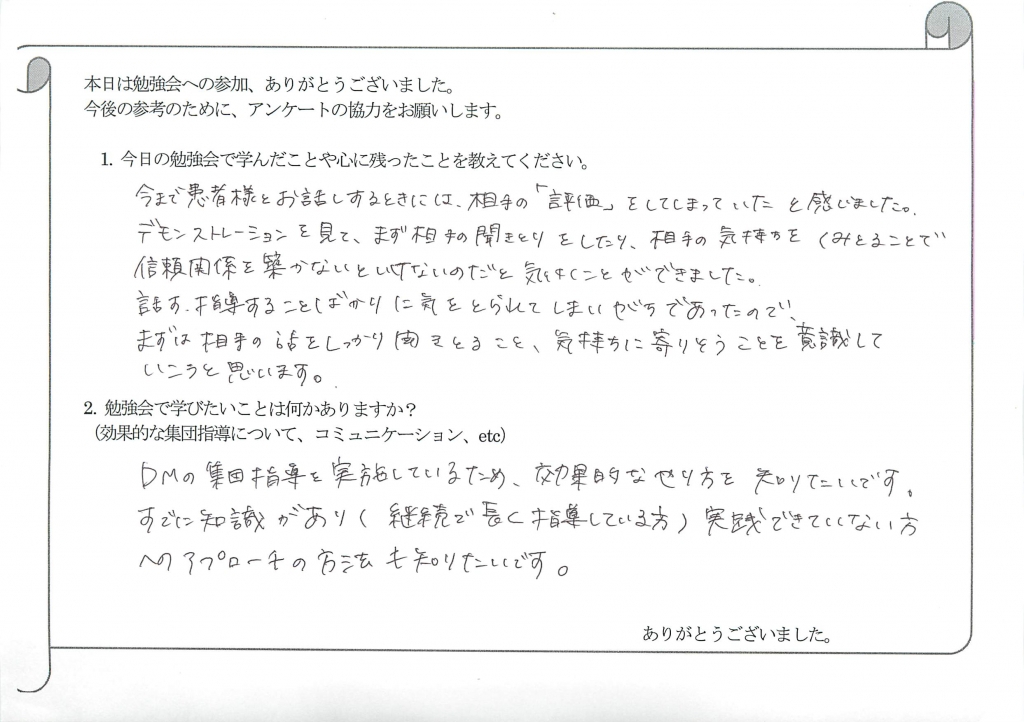 本日は勉強会への参加、ありがとうございました。
今後の参考のために、アンケートの協力をお願いします。
1. 今日の勉強会で学んだことや心に残ったことを教えてください。
今まで患者様とお話しするときには、相手の「評価」をしてしまっていたと感じました。
デモンストレーションを見て、まず相手の聞きとりをしたり、相手の気持ちをくみとることで
信頼関係を築かないといけないのだと気付くことができました。
話す、指導することばかりに気をとられてしまいがちであったので、
まずは相手の話をしっかり聞きとること、気持ちに寄りそうことを意識して
いこうと思います。
2. 勉強会で学びたいことは何かありますか？
（効果的な集団指導について、コミュニケーション、etc）
DMの集団指導を実施しているため、効果的なやり方を知りたいです。
すでに知識があり（継続で長く指導している方）実践できていない方
へのアプローチの方法も知りたいです。
ありがとうございました。